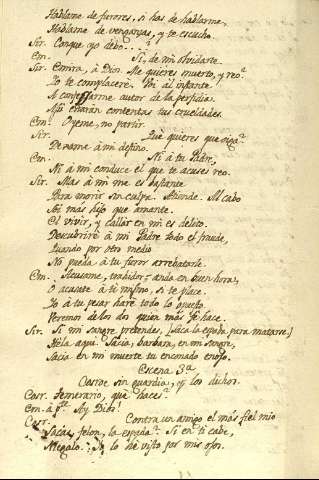 Hablame de furores, si has de hablarme,
Hablame de venganzas, y te escucho.
Sir. Conque yo debo...?
Em. Si, de mi olvidarte.
Sir. Emira, à Dios. Me quieres muerto, y reo?
Yo te complaceré. Voi al infante
A confesarme autor de la perfidia.
Mui contentas tus crueldades.
Em. Oyeme, no partir.
Sir. Qué quieres que oiga?
Dexame à mi destino.
Em. Ni à tu Padre,
Ni à mi conduce el que te acuses reo.
Sir. Mas à mi me es bastante
Para morir sin culpa. Atiende. Al cabo
Soi mas hijo que amante.
El vivir, y callar en mi es delito.
Descubriré à mi Padre todo el fraude,
Quando por otro medio
No pueda à tu furor arrebatarle.
Em. Acusame, trahidor; anda en buen hora,
O acusate à ti mismo, si te place.
Yo à tu pesar haré todo lo opuesto.
Veremos de los dos quien más fe hace.
Sir. Si mi sangre pretendes, (Saca la espada para matarse.)
Hela aqui. Sacia, barbara, en mi sangre,
Sacia en mi muerte tu enconado enojo.
Escena 3ª
Cosroe sin guardia, y los dichos.
Cosr. Temerario, que haces?
Em. à pte. Ay Dios!
Cosr. Contra un amigo el más fiel mio
Sacas, felon, la espada? Si en ti cabe,
Niegalo: Yo lo hé visto por mis ojos.